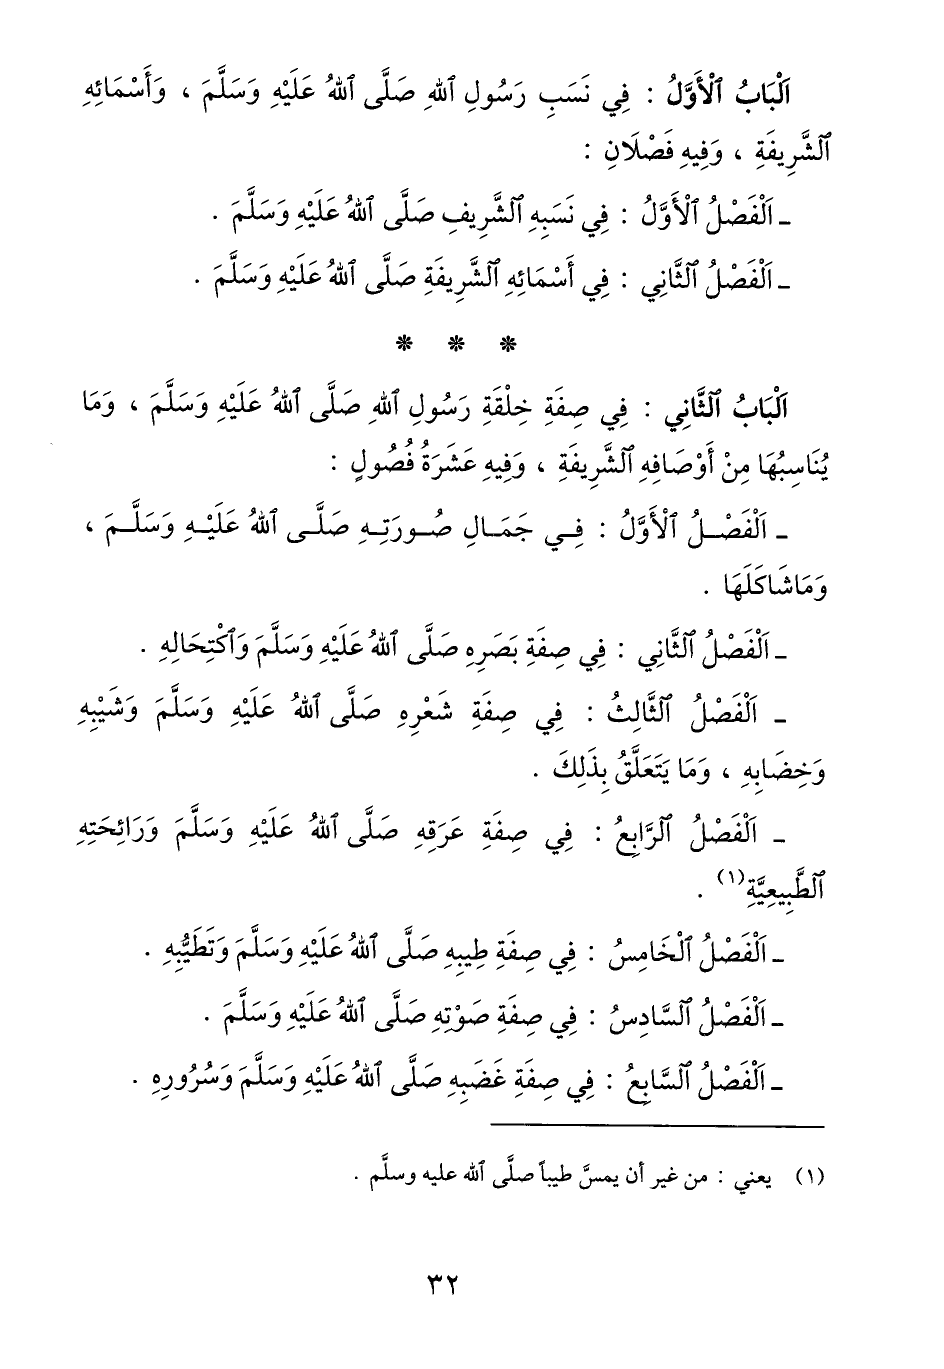 اَلْبَابُ ٱلْأَوَّلُ : فِي نَسَبِ رَسُولِ ٱللهِ صَلَّى ٱللهُ عَلَيْهِ وَسَلَّمَ ، وَأَسْمَائِهِ
ٱلشَّرِيفَةِ ، وَفِيهِ فَصْلَانِ :
ـ اَلْفَصْلُ ٱلْأَوَّلُ : فِي نَسَبِهِ ٱلشَّرِيفِ صَلَّى ٱللهُ عَلَيْهِ وَسَلَّمَ .
ـ اَلْفَصْلُ ٱلثَّانِي : فِي أَسْمَائِهِ ٱلشَّرِيفَةِ صَلَّى ٱللهُ عَلَيْهِ وَسَلَّمَ .
* * *
اَلْبَابُ ٱلثَّانِي : فِي صِفَةِ خِلْقَةِ رَسُولِ ٱللهِ صَلَّى ٱللهُ عَلَيْهِ وَسَلَّمَ ، وَمَا
يُنَاسِبُهَا مِنْ أَوْصَافِهِ ٱلشَّرِيفَةِ ، وَفِيهِ عَشَرَةُ فُصُولٍ :
ـ اَلْفَصْلُ ٱلْأَوَّلُ : فِي جَمَالِ صُورَتِهِ صَلَّى ٱللهُ عَلَيْهِ وَسَلَّمَ ،
وَمَا شَاكَلَهَا .
ـ اَلْفَصْلُ ٱلثَّانِي : فِي صِفَةِ بَصَرِهِ صَلَّى ٱللهُ عَلَيْهِ وَسَلَّمَ وَٱكْتِحَالِهِ .
ـ اَلْفَصْلُ ٱلثَّالِثُ : فِي صِفَةِ شَعْرِهِ صَلَّى ٱللهُ عَلَيْهِ وَسَلَّمَ وَشَيْبِهِ
وَخِضَابِهِ ، وَمَا يَتَعَلَّقُ بِذَلِكَ .
ـ اَلْفَصْلُ ٱلرَّابِعُ : فِي صِفَةِ عَرَقِهِ صَلَّى ٱللهُ عَلَيْهِ وَسَلَّمَ وَرَائِحَتِهِ
ٱلطَّبِيعِيَّةِ(١) .
ـ اَلْفَصْلُ ٱلْخَامِسُ : فِي صِفَةِ طِيبِهِ صَلَّى ٱللهُ عَلَيْهِ وَسَلَّمَ وَتَطَيُّبِهِ .
ـ اَلْفَصْلُ ٱلسَّادِسُ : فِي صِفَةِ صَوْتِهِ صَلَّى ٱللهُ عَلَيْهِ وَسَلَّمَ .
ـ اَلْفَصْلُ ٱلسَّابِعُ : فِي صِفَةِ غَضَبِهِ صَلَّى ٱللهُ عَلَيْهِ وَسَلَّمَ وَسُرُورِهِ .
(١) يعني : من غير أن يمسَّ طيباً صلَّى ٱلله عليه وسلَّم .
٣٢